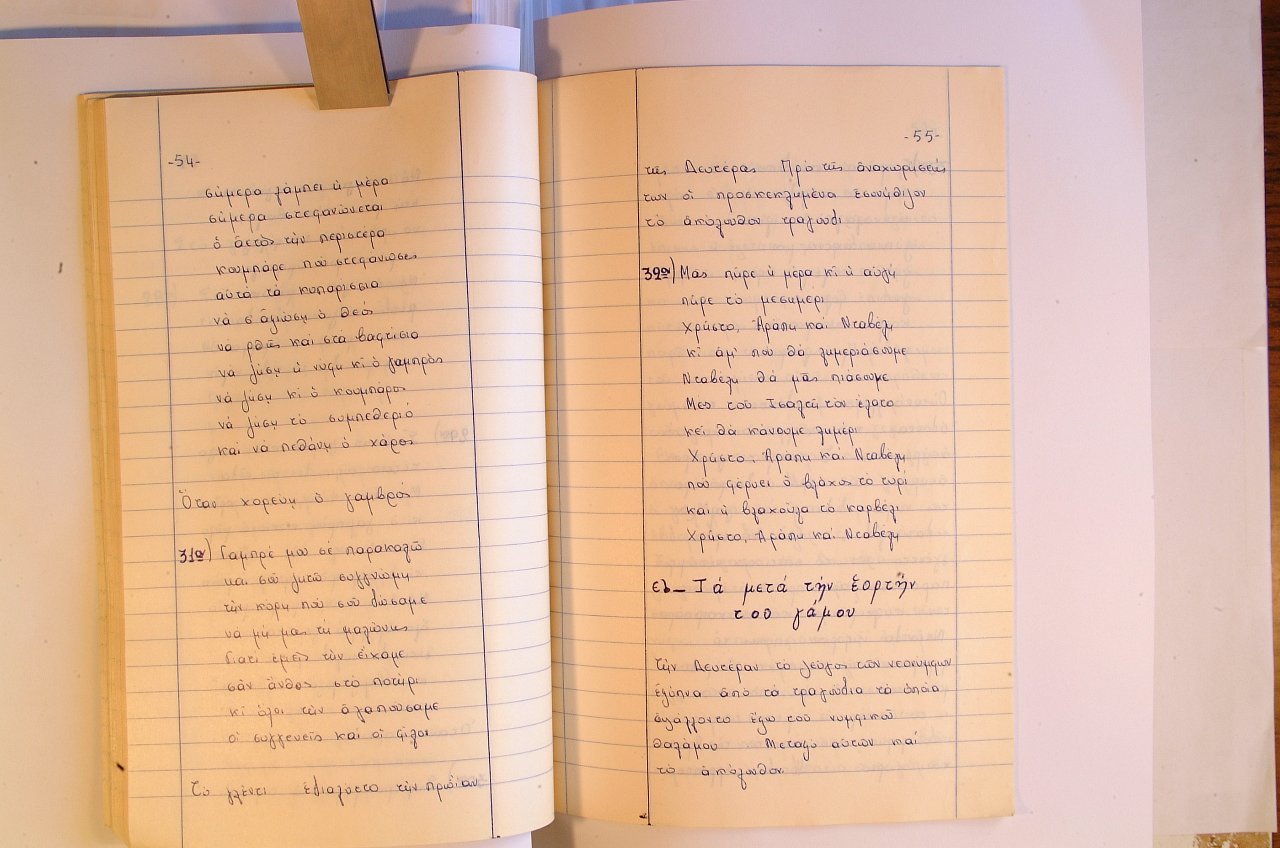 -54-
σήμερα λάμπει ἡ μέρα
σήμερα στεφανώνεται
ὁ ἀετὸς τὴν περιστέρα
κουμπάρε, ποὺ στεφάνωσες
αὐτὰ τὰ κυπαρίσσια
νὰ σ' ἀξιώση ὁ θεός
νὰ ρθῆς καὶ στὰ βαφτίσια
νὰ ζήση ἡ νύφη κι ὁ γαμπρός
νὰ ζήση κι ὁ κουμπάρος
νὰ ζήση τὸ συμπεθεριό
καὶ νὰ πεθάνη ὁ χάρος
Ὅταν χορεύη ὁ γαμβρός
31α) Γαμπρέ μου σὲ παρακαλῶ
καὶ σοῦ ζητῶ συγγνώμη
τὴν κόρη ποὺ σοῦ δώσαμε
νὰ μή μας τη μαλώνης
διατί ἐμεῖς τὴν εἴχαμε
σὰν ἄνθος στὸ ποτήρι
κι ὅλοι τὴν ἀγαπούσαμε
οἱ συγγενεῖς καὶ οἱ φίλοι
Τὸ γλέντι ἐδιαλύετο τὴν πρωΐαν
-55-
τῆς Δευτέρας Πρὸ τῆς ἀναχωρήσεώς
των οἱ προσκεκλημένοι ἐσυνήθιζον
τὸ ἀκόλουθον τραγούδι
32α) Μᾶς πῆρε ἡ μέρα κι ἡ αὐγή
πῆρε τὸ μεσημέρι
Χρῆστο, Ἀράπη καὶ Νταβέλη
κι ἀμ' ποὺ θὰ λημεριάσουμε
Νταβέλη θὰ μᾶς πιάσουμε
Μες τοῦ Τσαλῆ τὸν ἔλατο
κεῖ θὰ κάνουμε λημέρι
Χρῆστο, Ἀράπη καὶ Νταβέλη
ποὺ φέρνει ὁ βλάχος το τυρί
καὶ ἡ βλαχούλα τὸ καρβέλι
Χρῆστο, Ἀράπη καὶ Νταβέλη
εδ_ Τά μετά τήν ἑορτήν
του γάμου
Τὴν Δευτέραν τὸ ζεῦγος τῶν νεονύμφων
ἐξύπνα ἀπὸ τὰ τραγούδια τὰ ὁποῖα
ἐψάλλοντο ἔξω τοῦ νυμφικοῦ
θαλάμου Μεταξὺ αὐτῶν καὶ
τὸ ἀκόλουθον